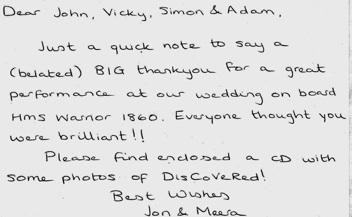 Dear John, Vicky, Simon & Adam,
Just a quick note to say a
(belated) BIG thankyou for a great
performance at our wedding on board
HMS Warrior 1860. Everyone thought you
were brilliant!!
Please find enclosed a CD with
some photos of DisCoVeRed!
Best Wishes
Jon & Meera